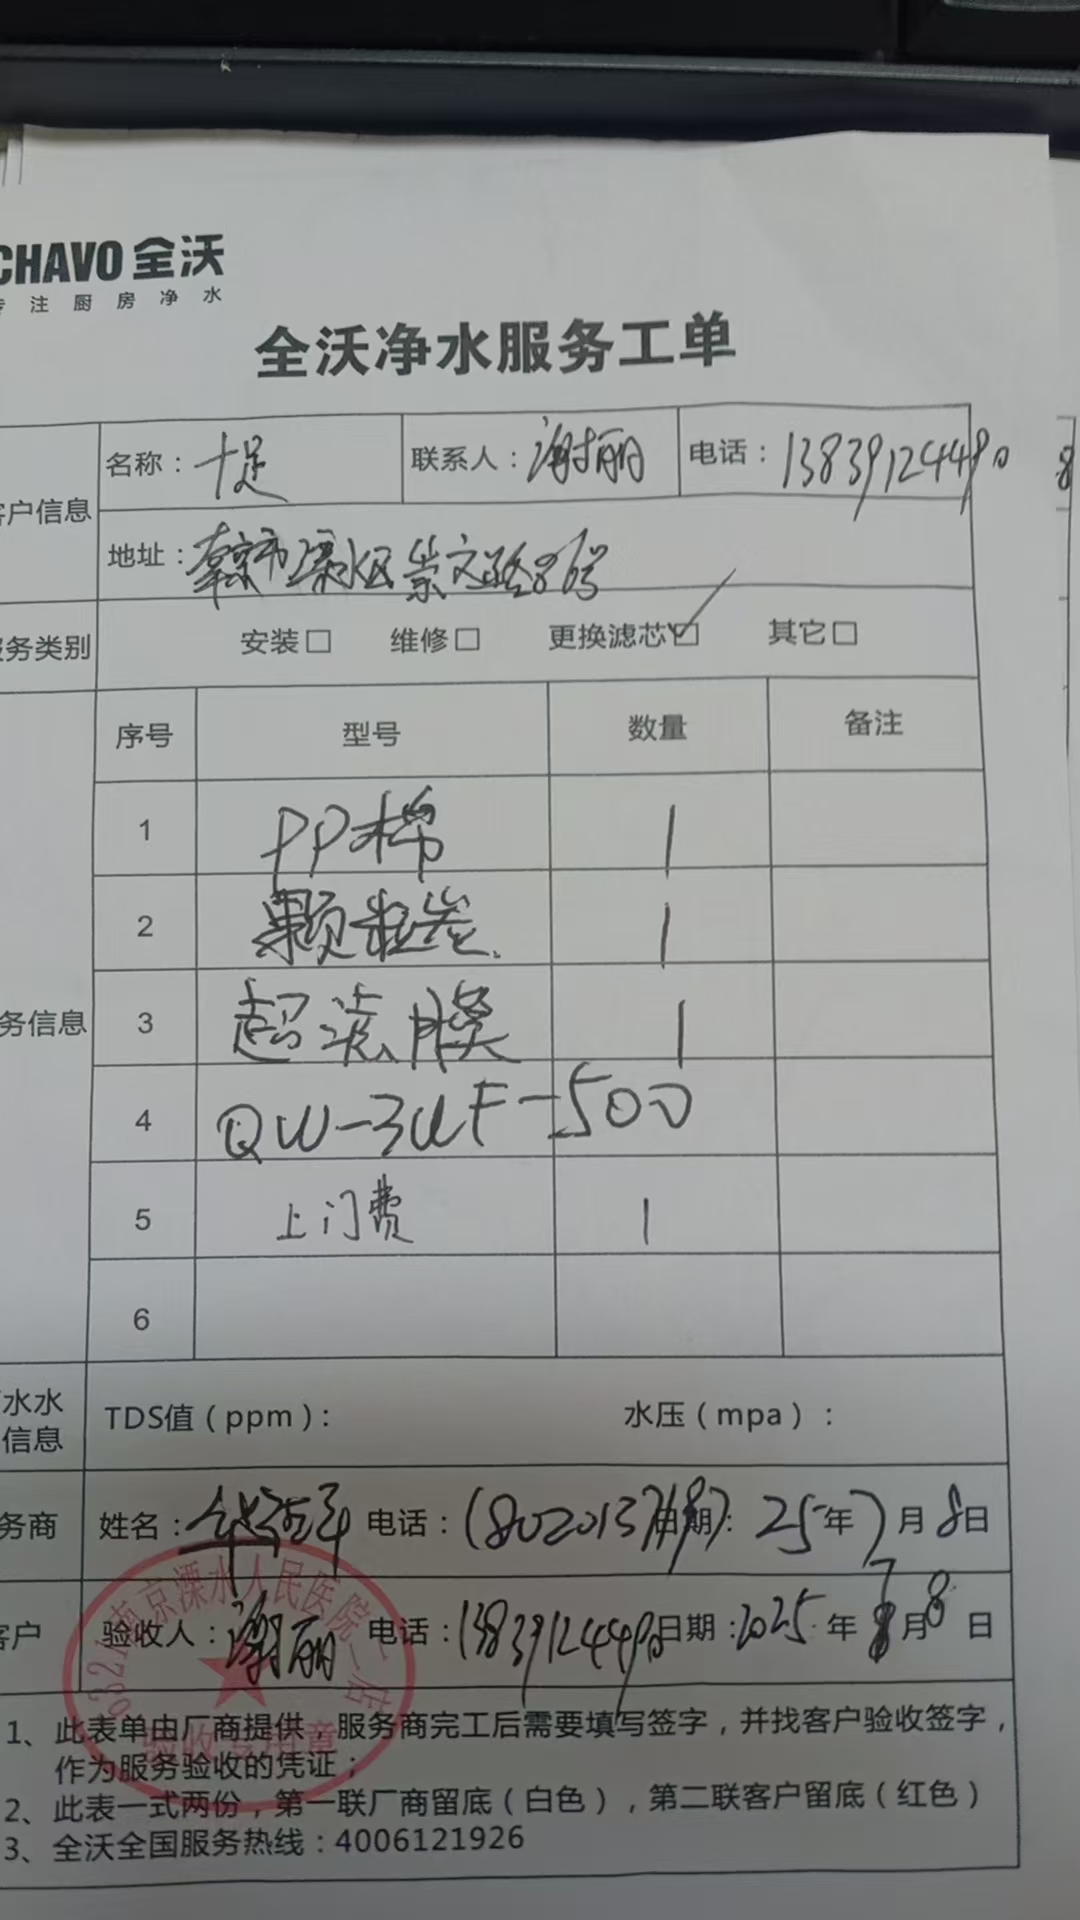 CHAVO 全沃
专注厨房净水
全沃净水服务工单
客户信息
名称：十足 联系人：谢丽 电话：13839124490
地址：南京市溧水区崇文路86号
服务类别 安装□ 维修□ 更换滤芯☑ 其它□
序号 型号 数量 备注
1 PP棉 1
2 颗粒炭 1
务信息 3 超滤膜 1
4 QW-3UF-500
5 上门费 1
6
水水
信息
TDS值（ppm）： 水压（mpa）：
务商 姓名： 电话：18020137 日期：25年7月8日
客户 验收人：谢丽 电话：13839124490 日期：2025年7月8日
南京溧水人民医院一店
验收专用章
1、此表单由厂商提供，服务商完工后需要填写签字，并找客户验收签字，
作为服务验收的凭证；
2、此表一式两份，第一联厂商留底（白色），第二联客户留底（红色）
3、全沃全国服务热线：4006121926